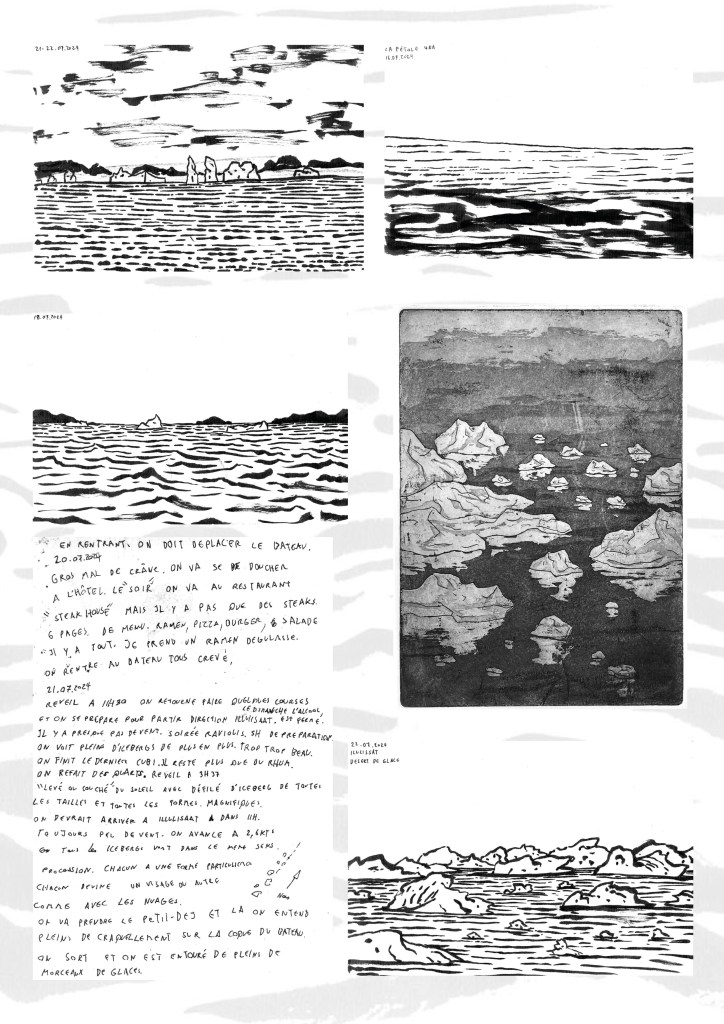 21-22.07.2024
LA PÉTOLE
18.07.2024
EN RENTRANT. ON DOIT DEPLACER LE BATEAU.
20.07.2024
GROS MAL DE CRÂNE. ON VA SE DOUCHER
A L'HÔTEL. LE "SOIR" ON VA AU RESTAURANT
"STEAK HOUSE" MAIS IL Y A PAS QUE DES STEAKS.
6 PAGES DE MENU. RAMEN, PIZZA, BURGER, SALADE
IL Y A TOUT. JE PREND UN RAMEN DEGULASSE.
ON RENTRE AU BATEAU TOUS CREVÉ,
21.07.2024
REVEIL A 11H30 ON RETOURNE FAIRE QUELQUES COURSES
LE DIMANCHE L'ALCOOL
ET ON SE PREPARE POUR PARTIR DIRECTION ILLULISSAT. EST FERMÉ.
IL Y A PRESQUE PAS DE VENT. SOIRÉE RAVIOLIS. 5H DE PREPARATION.
ON VOIT PLEINS D'ICEBERGS DE PLUS EN PLUS. TROP TROP BEAU.
ON FINIT LE DERNIER CUBI. IL RESTE PLUS QUE DU RHUM.
ON REFAIT DES QUARTS. REVEIL A 3H37
"LEVÉ OU COUCHÉ" DU SOLEIL AVEC DÉFILÉ D'ICEBERG DE TOUTES
LES TAILLES ET TOUTES LES FORMES. MAGNIFIQUES.
ON DEVRAIT ARRIVER A ILLULISSAT DANS 11H.
TOUJOURS PEU DE VENT. ON AVANCE A 2,6KTS
ET TOUS LES ICEBERGS VONT DANS CE MEME SENS.
PROCESSION. CHACUN A UNE FORME PARTICULIERE
CHACUN DEVINE UN VISAGE OU AUTRE
COMME AVEC LES NUAGES.
NOUS
ON VA PRENDRE LE PETIT-DEJ ET LA ON ENTEND
PLEINS DE CRAQUELLEMENT SUR LA COQUE DU BATEAU.
ON SORT ET ON EST ENTOURÉ DE PLEINS DE
MORCEAUX DE GLACES.
22.07.2024
ILLULISSAT
DESERT DE GLACE